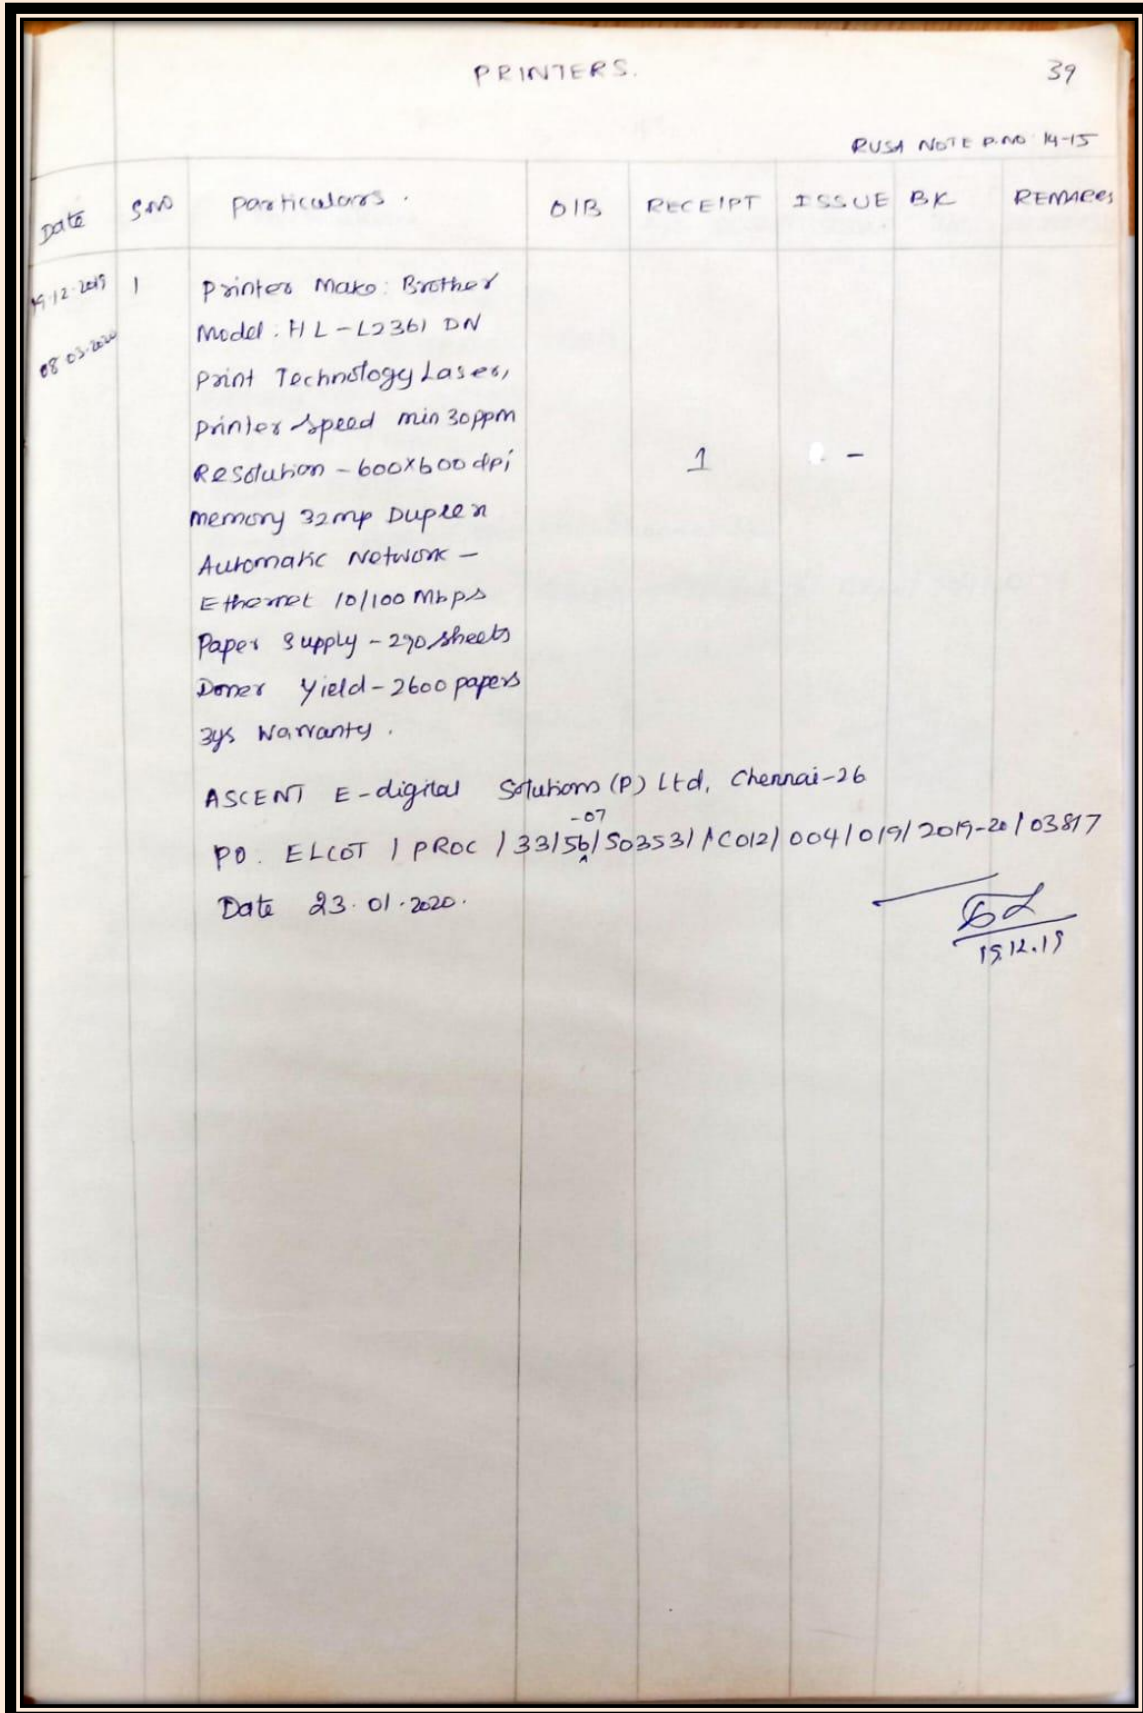 PRINTERS.
39
RUSA NOTE P.NO 14-15
Date S.NO Particulars. O/B RECEIPT ISSUE BK REMARKS
19.12.2019 1 Printer Make: Brother
08.03.2020 Model: HL-L2361 DN
Print Technology Laser,
printer speed min 30ppm
Resolution - 600x600 dpi 1 -
memory 32mp Duplex
Automatic Network -
Ethernet 10/100 Mbps
Paper Supply - 290 sheets
Doner Yield - 2600 papers
3ys Warranty.
ASCENT E-digital Solutions (P) Ltd, Chennai-26
-07
PO. ELCOT / PROC / 33/56/S0353/AC012/004/019/2019-20/03817
Date 23.01.2020.
19.12.19